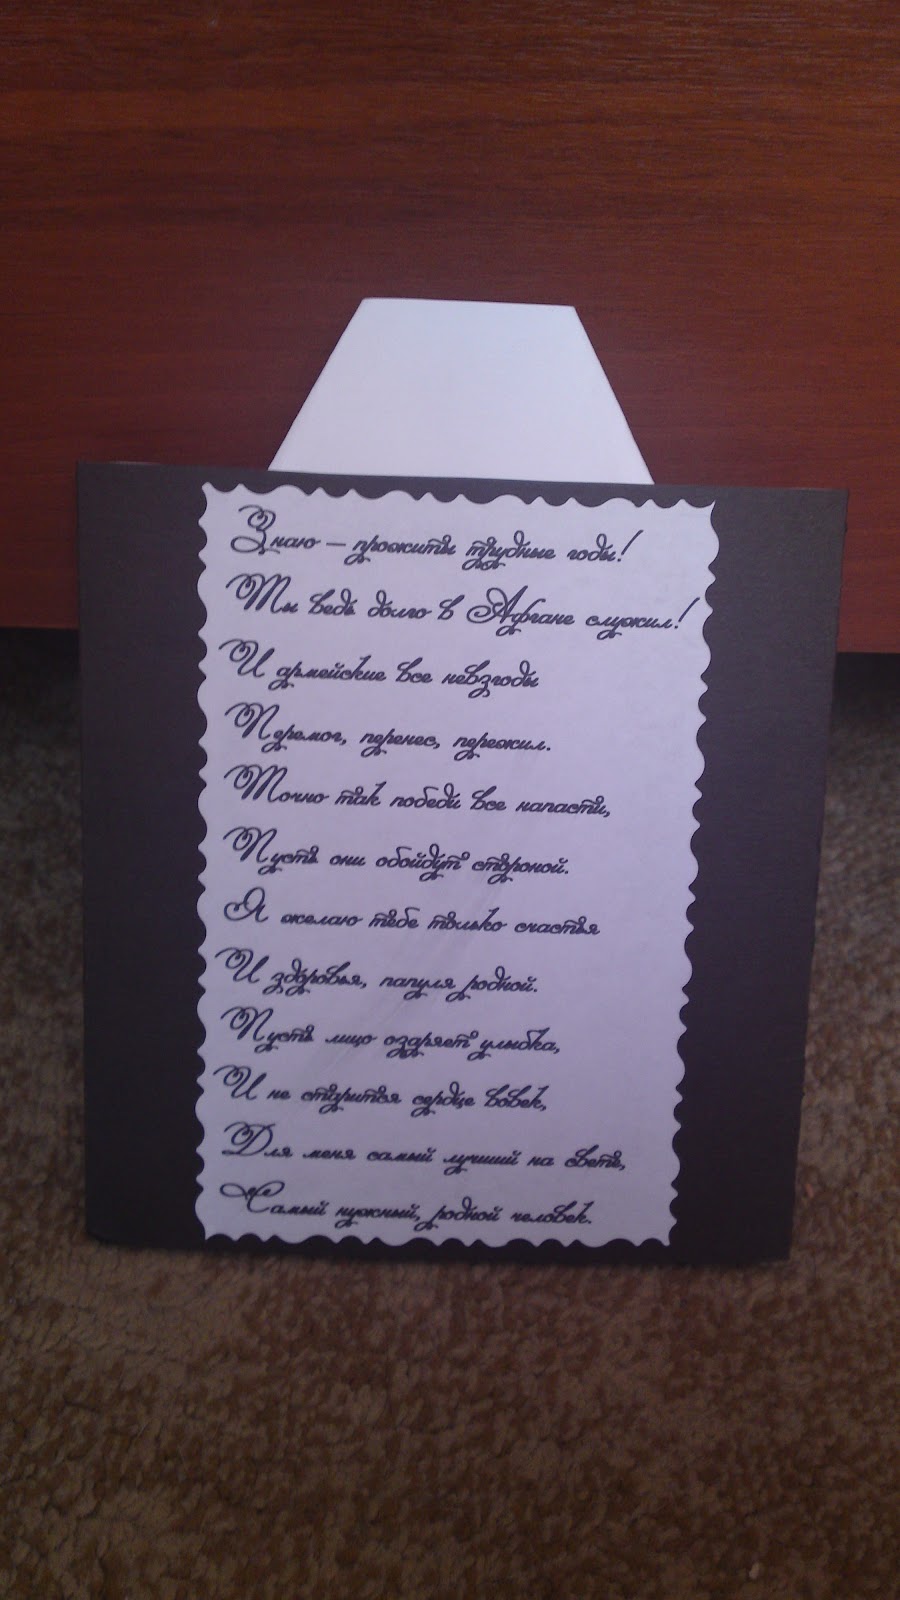 Знаю — прожиты трудные годы!
Ты ведь долго в Афгане служил!
И армейские все невзгоды
Перемог, перенес, пережил.
Точно так победи все напасти,
Пусть они обойдут стороной.
Я желаю тебе только счастья
И здоровья, папуля родной.
Пусть лицо озаряет улыбка,
И не старится сердце вовек,
Для меня самый лучший на свете,
Самый нужный, родной человек.